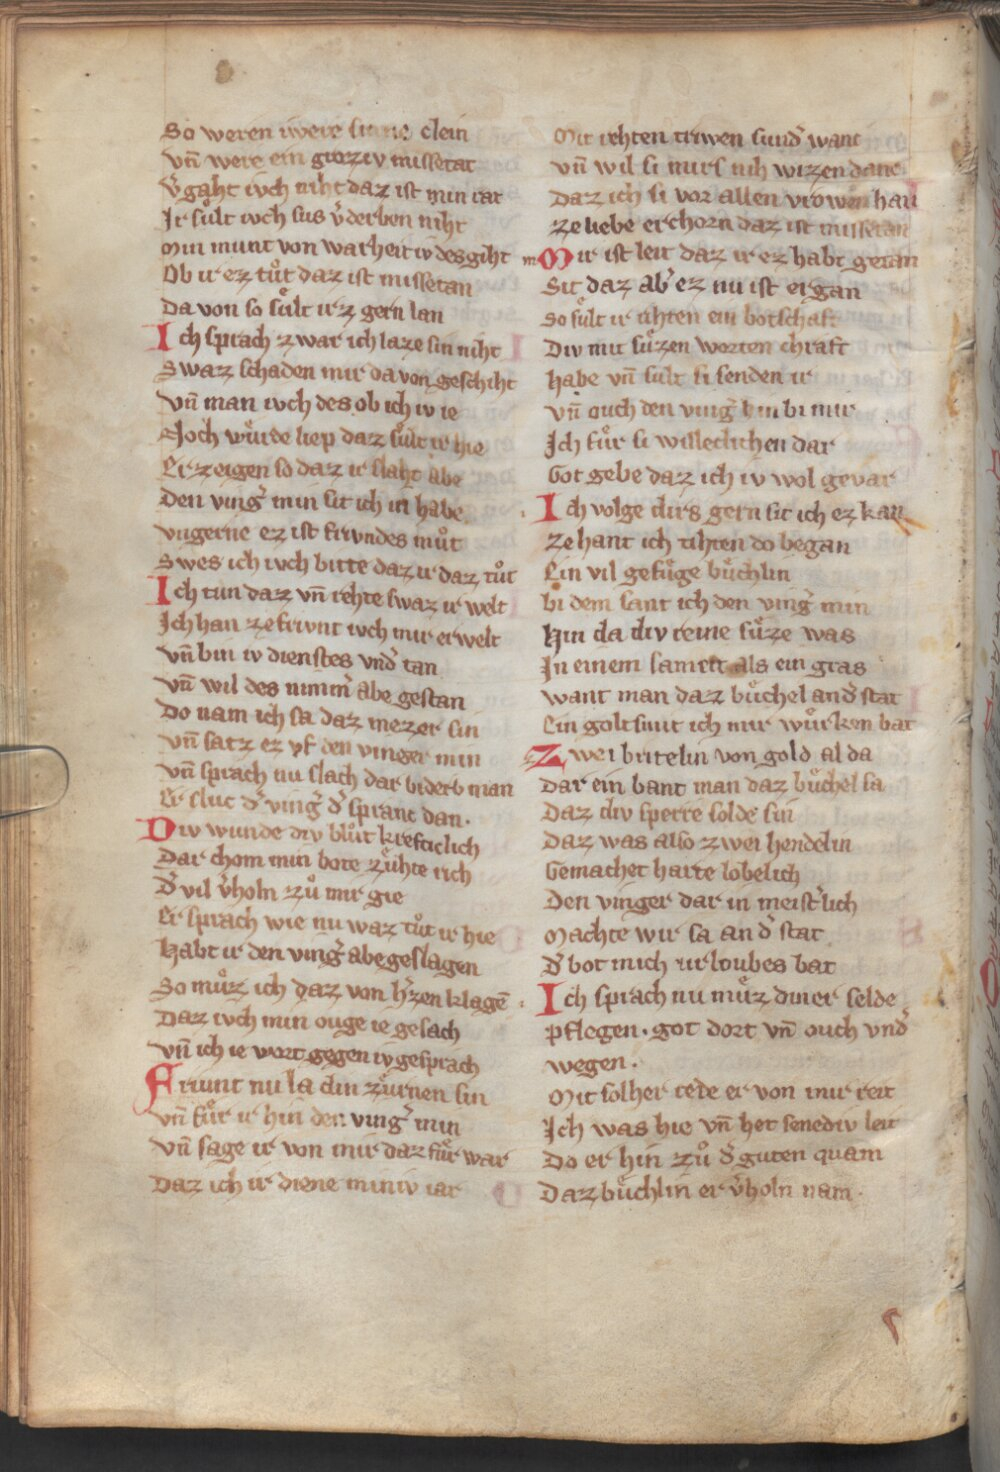 So weren iwere sinne clein
Vn̄ were ein groziv missetat
V̾gaht ivch niht daz ist min rat
Jr sult ivch sus v̾derben niht
Min munt von warheit iv des giht
Ob ir ez tuͦt daz ist missetan
Da von so suͤlt irz gern lan
Ich sprach zwar ich laze sin niht
Swaz schaden mir da von geschiht
Vn̄ man ivch des ob ich iv ie
Noch wuͤrde liep daz suͤlt ir hie
Erzeigen so daz ir slaht abe
Den ving̾ min sit ich in habe
Vngerne ez ist frivndes muͦt
Swes ich ivch bitte daz ir daz tuͦt
Ich tun daz vn̄ rehte swaz ir welt
Jch han ze frivnt ivch mir erwelt
Vn̄ bin iv dienstes vnd̾ tan
Vn̄ wil des nimm̾ abe gestan
Do nam ich sa daz mezer sin
Vn̄ satz ez vf den vinger min
Vn̄ sprach nu slach dar biderb man
Er sluc d̾ ving̾ d̾ spranc dan.
Div wunde div bluͦt kreftclich
Dar chom min bote zuͤhte rich
D̾ vil v̾holn zuͦ mir gie
Er sprach wie nu waz tuͦt ir hie
Habt ir den ving̾ abe geslagen
So muͦz ich daz von h̾zen klagē
Daz ivch min ouge ie gesach
Vn̄ ich ie wort gegen iv gesprach
Frivnt nu la din zuͤrnen sin
Vn̄ fuͤr ir hin den ving̾ min
Vn̄ sage ir von mir daz fuͤr war
Daz ich ir diene miniv iar
Mit rehten triwen sund̾ wanc
Vn̄ wil si mirs nih wizen danc
Daz ich si vor allen vrowen han
Ze liebe erchorn daz ist missetan
m Mir ist leit daz ir ez habt getan
Sit daz ab̾ ez nu ist ergan
So suͤlt ir tihten ein botschaft
Div mit suͤzen worten chraft
Habe vn̄ sult si senden ir
Vn̄ ouch den ving̾ hin bi mir
Ich fuͤr si willeclichen dar
Got gebe daz ich iv wol gevar
Ich volge dirs gern sit ich ez kan
Zehant ich tihten do began
Ein vil gefuͤge buͤchlin
Bi dem sant ich den ving̾ min
Hin da div reine suͤze was
Jn einem samett als ein gras
Want man daz buͤchel and̾ stat
Ein goltsmit ich mir wuͤrken bat
z Zwei britelin von gold al da
Dar ein bant man daz buͤchel sa
Daz div sperre solde sin
Daz was also zwei hendelin
Gemachet harte lobelich
Den vinger dar in meist̾lich
Machte wir sa an d̾ stat
D̾ bot mich urloubes bat
Ich sprach nu muͤz diner selde
pflegen. got dort vn̄ ouch vnd̾
wegen.
Mit solher rede er von mir reit
Jch was hie vn̄ het senediv leit
Do er hin zuͦ d̾ guten quam
Daz buͤchlin er v̾holn nam.